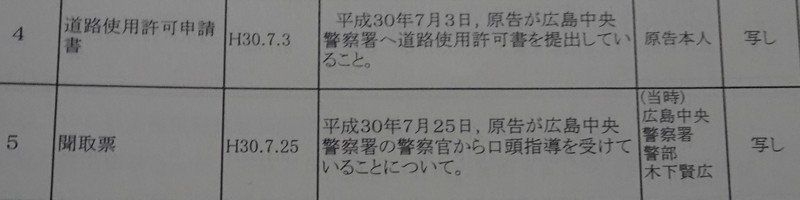 4
道路使用許可申請
書
H30.7.3
平成30年7月3日，原告が広島中央
警察署へ道路使用許可書を提出してい
ること。
原告本人
写し
5
聞取票
H30.7.25
平成30年7月25日，原告が広島中央
警察署の警察官から口頭指導を受けて
いることについて。
(当時)
広島中央
警察署
警部
木下賢広
写し